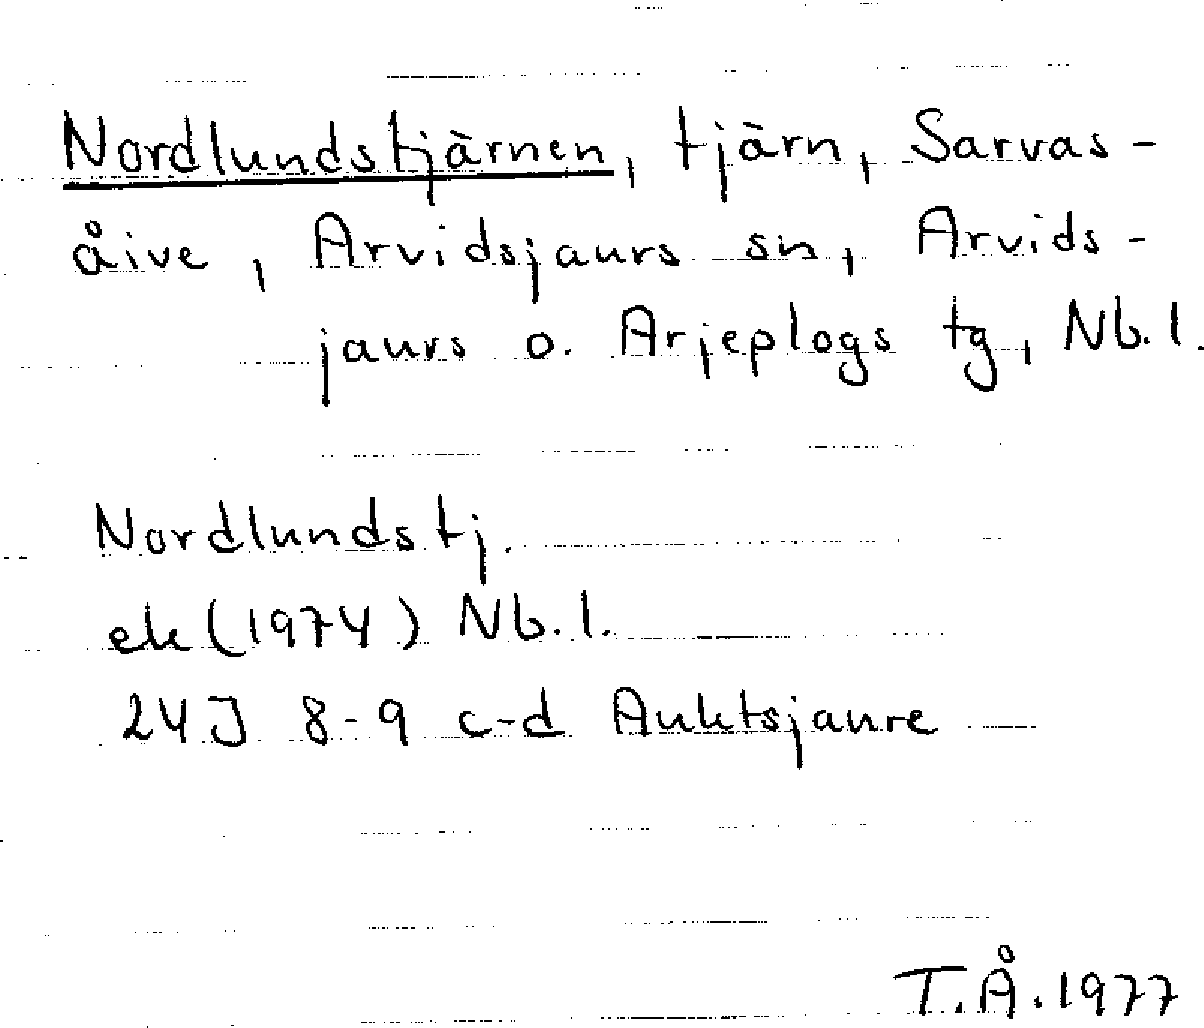 Nordlundstjärnen, tjärn, Sarvas-
åive, Arvidsjaurs sn, Arvids-
jaurs o. Arjeplogs tg, Nb.l.
Nordlundstj.
ek (1974) Nb.l.
24J 8-9 c-d Auktsjaure
T.Å. 1977